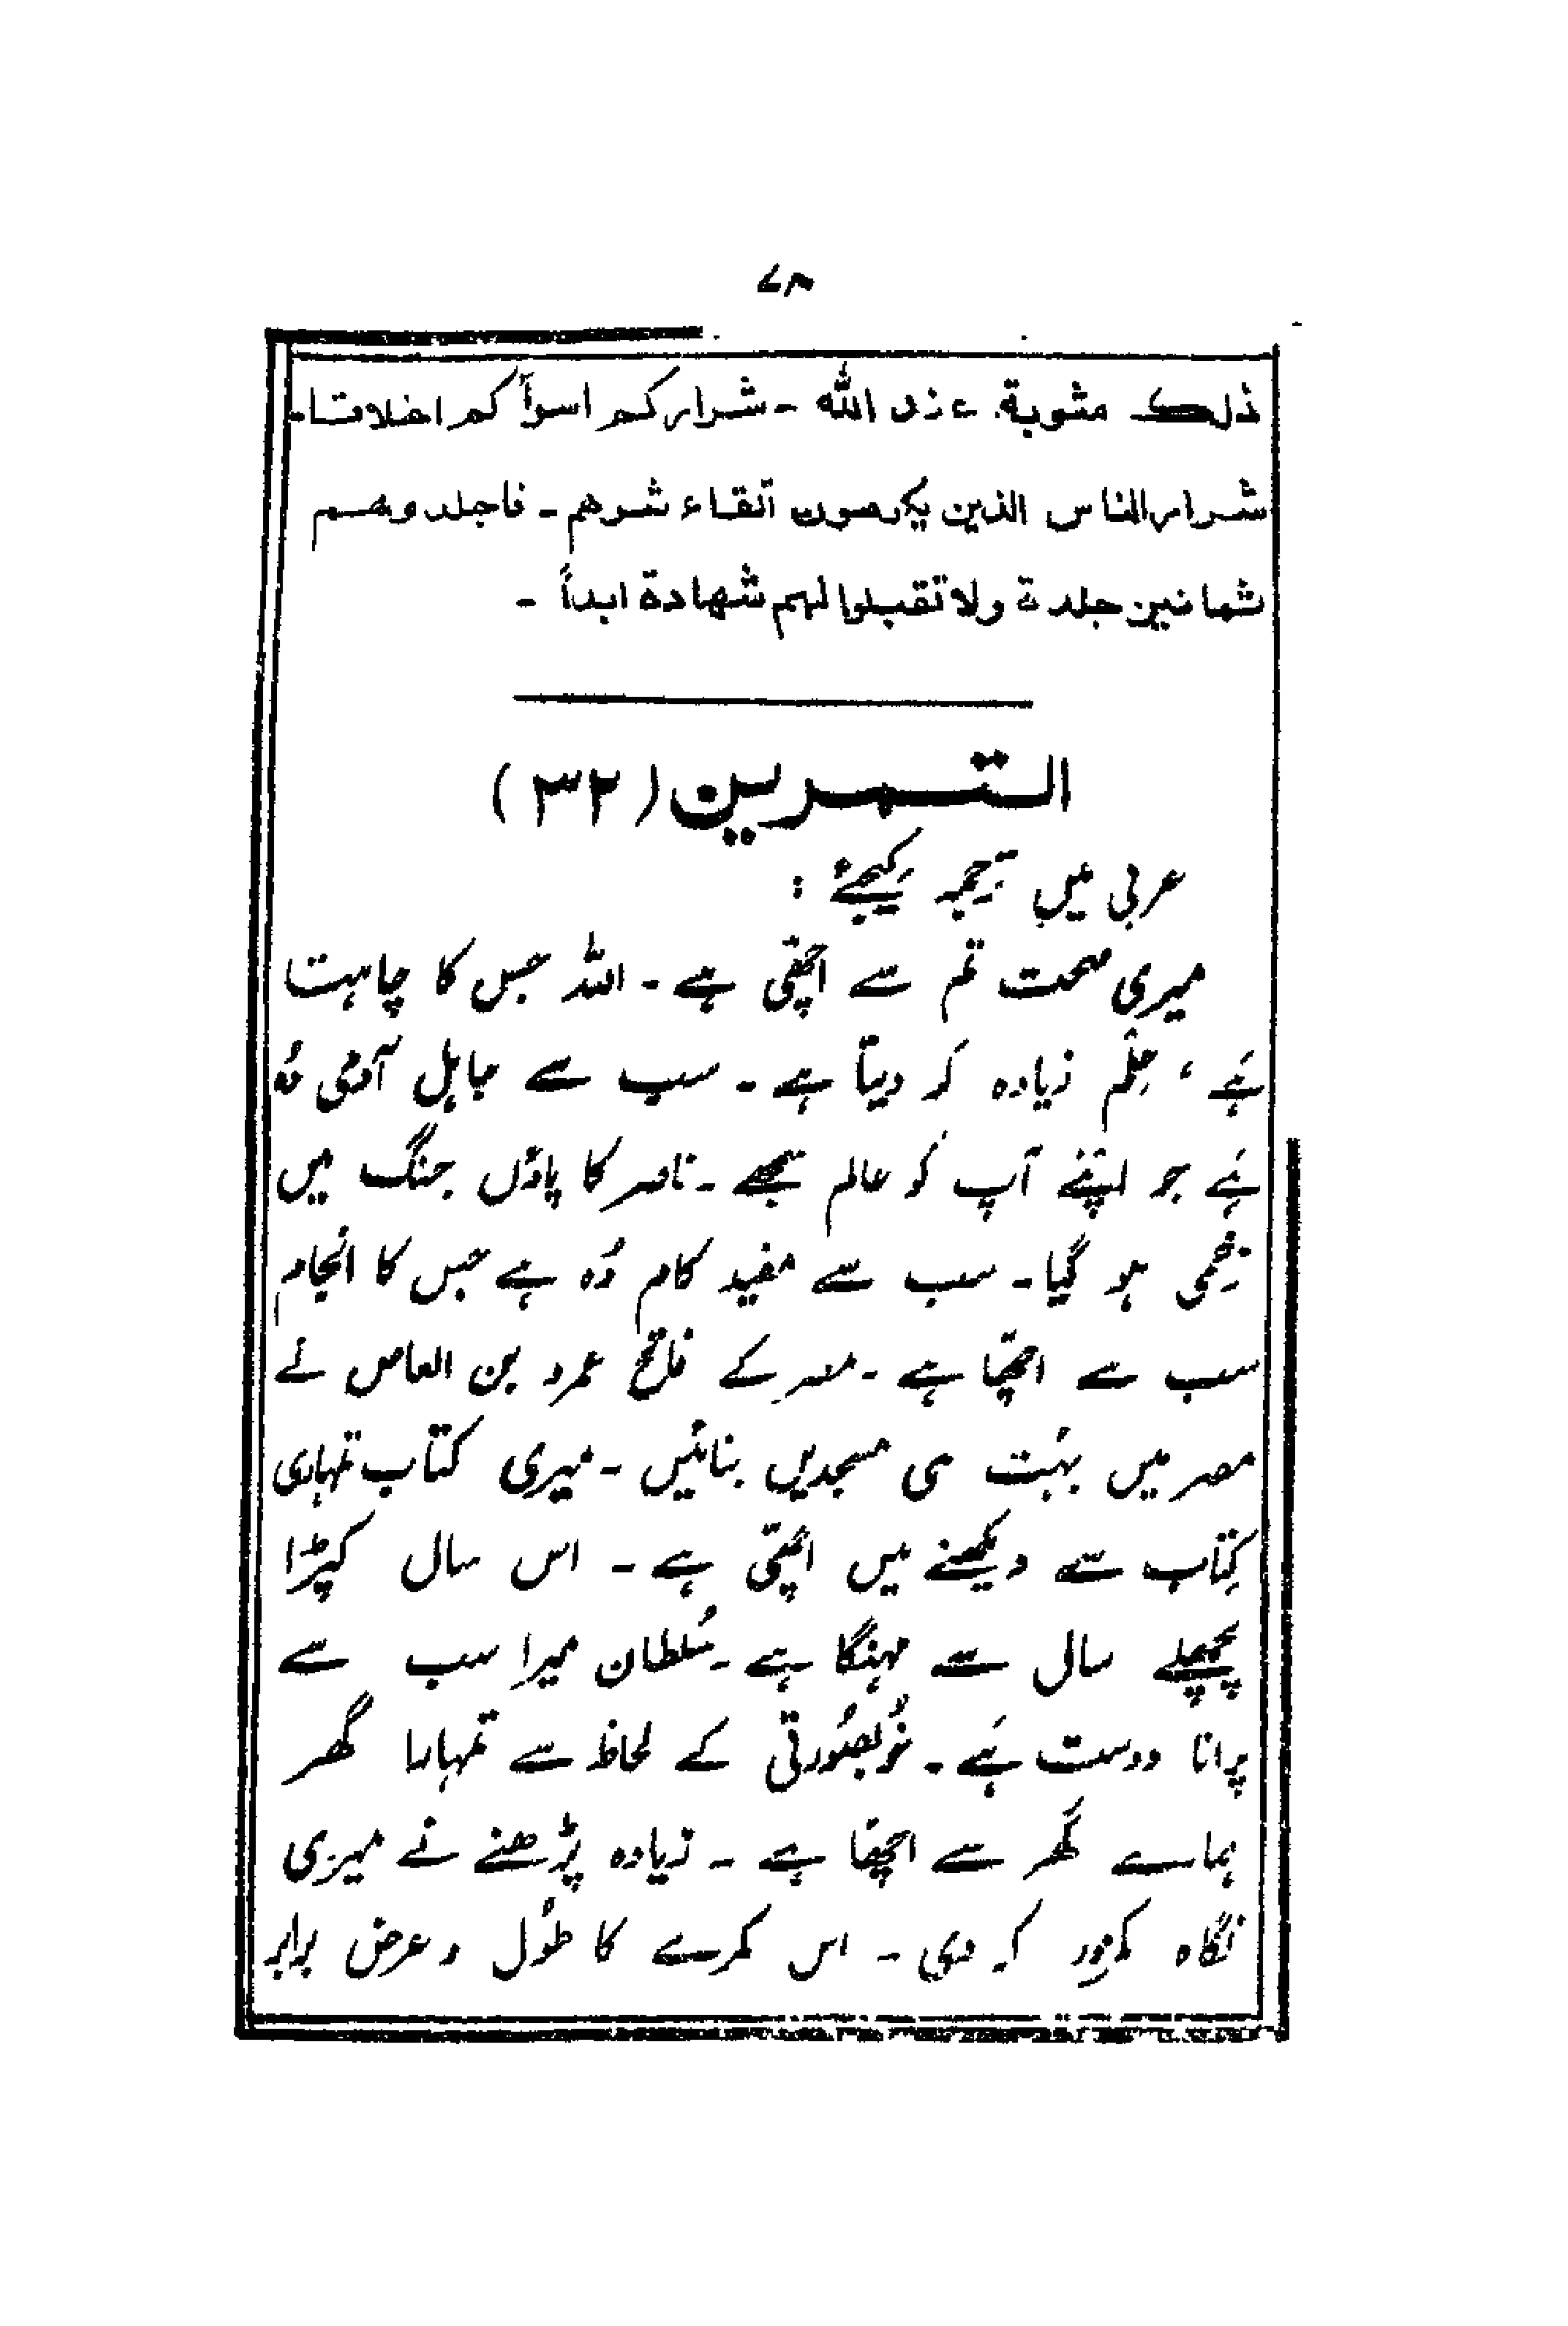 ۷۳
ذلك مثوبة عند الله - شراركم اسوأكم اخلاقا -
شرار الناس الذين يكرمون اتقاء شرهم - فاجلدوهم
ثمانين جلدة ولا تقبلوا لهم شهادة ابداً -
التمرين (٣٢)
عربی میں ترجمہ کیجئے :
میری صحت تم سے اچھی ہے - اللہ جس کا چاہتا
ہے ، علم زیادہ کر دیتا ہے - سب سے جاہل آدمی وُہ
ہے جو اپنے آپ کو عالم سمجھے - ناصر کا پاؤں جنگ میں
زخمی ہو گیا - سب سے مفید کام وُہ ہے جس کا انجام
سب سے اچھا ہے - مصر کے فاتح عمرو بن العاص نے
مصر میں بہُت سی مسجدیں بنائیں - میری کتاب تمہاری
کتاب سے دیکھنے میں اچھی ہے - اس سال کپڑا
پچھلے سال سے مہنگا ہے - سُلطان میرا سب سے
پرانا دوست ہے - خُوبصُورتی کے لحاظ سے تمہارا گھر
ہمارے گھر سے اچھا ہے - زیادہ پڑھنے نے میری
نگاہ کمزور کر دی - اس کمرے کا طُول و عرض برابر